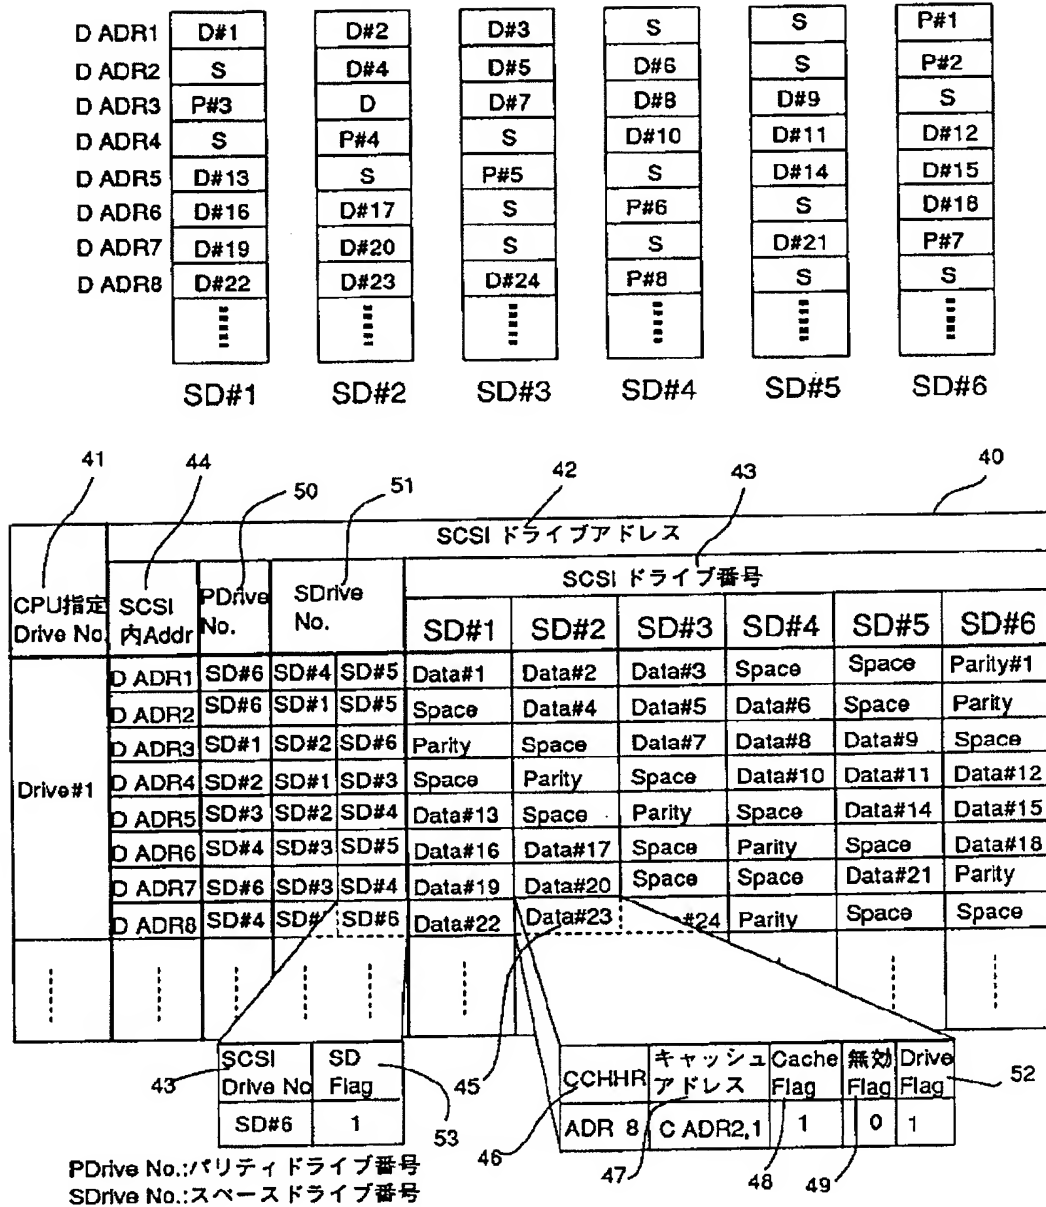 D ADR1 D#1 D#2 D#3 S S P#1
D ADR2 S D#4 D#5 D#6 S P#2
D ADR3 P#3 D D#7 D#8 D#9 S
D ADR4 S P#4 S D#10 D#11 D#12
D ADR5 D#13 S P#5 S D#14 D#15
D ADR6 D#16 D#17 S P#6 S D#18
D ADR7 D#19 D#20 S S D#21 P#7
D ADR8 D#22 D#23 D#24 P#8 S S
SD#1 SD#2 SD#3 SD#4 SD#5 SD#6
41 44 50 51 42 43 40
SCSI ドライブアドレス
CPU指定 Drive No.
SCSI 内Addr
PDrive No.
SDrive No.
SCSI ドライブ番号
SD#1 SD#2 SD#3 SD#4 SD#5 SD#6
Drive#1
D ADR1 SD#6 SD#4 SD#5 Data#1 Data#2 Data#3 Space Space Parity#1
D ADR2 SD#6 SD#1 SD#5 Space Data#4 Data#5 Data#6 Space Parity
D ADR3 SD#1 SD#2 SD#6 Parity Space Data#7 Data#8 Data#9 Space
D ADR4 SD#2 SD#1 SD#3 Space Parity Space Data#10 Data#11 Data#12
D ADR5 SD#3 SD#2 SD#4 Data#13 Space Parity Space Data#14 Data#15
D ADR6 SD#4 SD#3 SD#5 Data#16 Data#17 Space Parity Space Data#18
D ADR7 SD#6 SD#3 SD#4 Data#19 Data#20 Space Space Data#21 Parity
D ADR8 SD#4 SD# SD#6 Data#22 Data#23 #24 Parity Space Space
SCSI Drive No SD Flag
SD#6 1
43 53 45
CCHHR キャッシュアドレス Cache Flag 無効 Flag Drive Flag
ADR 8 C ADR2,1 1 0 1
46 47 48 49 52
PDrive No.:パリティドライブ番号
SDrive No.:スペースドライブ番号